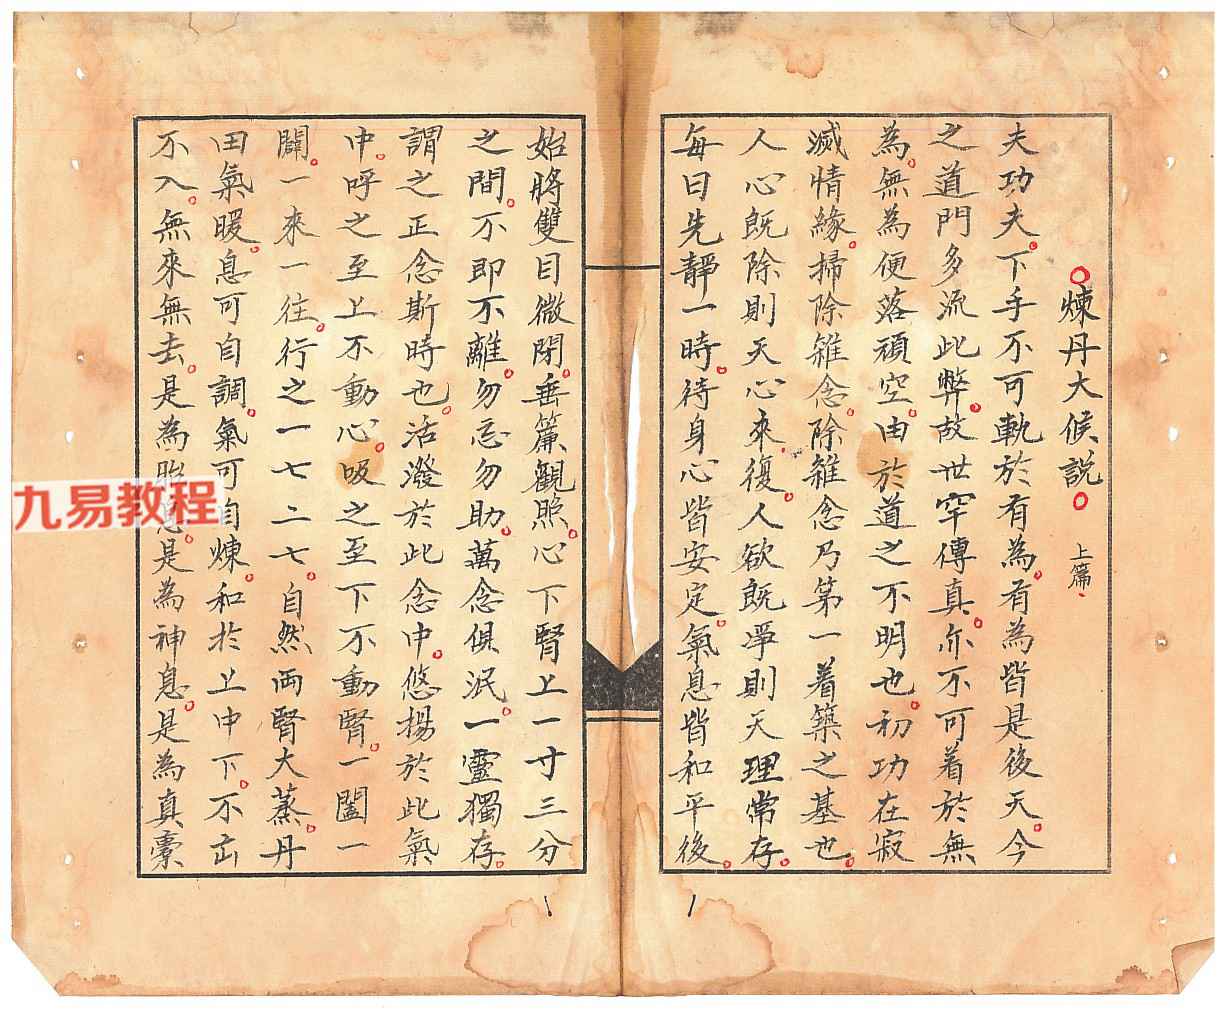 煉丹大候説 上篇
夫功夫下手不可軌於有為有為皆是後天今
之道門多流此弊故世罕傳真亦不可着於無
為無為便落頑空由於道之不明也初功在寂
滅情緣掃除雜念除雜念乃第一着築之基也
人心既除則天心來復人欲既淨則天理常存
每日先靜一時待身心皆安定氣息皆和平後
始將雙目微閉垂簾觀照心下腎上一寸三分
之間不即不離勿忘勿助萬念俱泯一靈獨存
謂之正念斯時也活潑於此念中悠揚於此氣
中呼之至上不動心吸之至下不動腎一闔一
闢一來一往行之一七二七自然両腎大蒸丹
田氣暖息可自調氣可自煉和於上中下不出
不入無來無去是為胎息是為神息是為真橐
九易教程